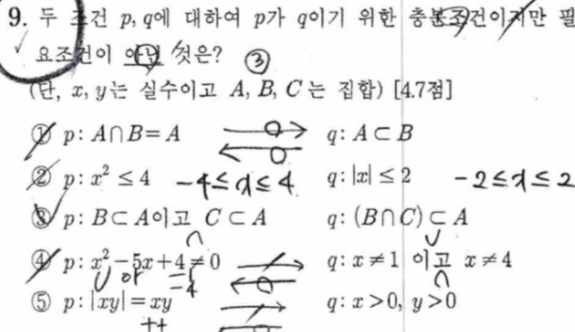 9. 두 조건 p, q에 대하여 p가 q이기 위한 충분조건이지만 필
요조건이 아닌 것은? ③
(단, x, y는 실수이고 A, B, C는 집합) [4.7점]
① p: A∩B=A q: A⊂B
② p: x² ≤ 4 -4≤x≤4 q: |x| ≤ 2 -2≤x≤2
③ p: B⊂A이고 C⊂A q: (B∩C)⊂A
④ p: x²-5x+4≠0 q: x≠1 이고 x≠4
⑤ p: |xy|=xy q: x>0, y>0
++